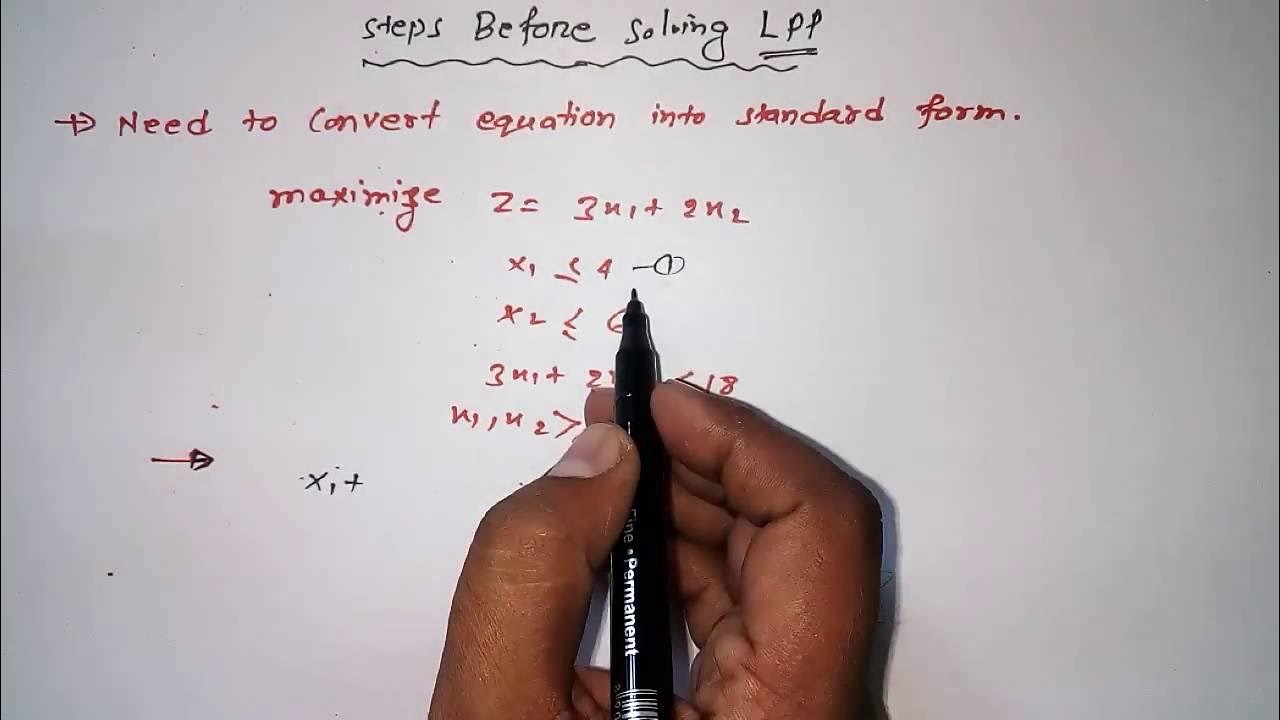 steps Before solving LPP
→ Need to convert equation into standard form.
maximize Z = 3x₁ + 2x₂
x₁ ≤ 4 —①
x₂ ≤ 6
3x₁ + 2x ≤ 18
x₁, x₂ >
→ x₁ +
Fine • Permanent